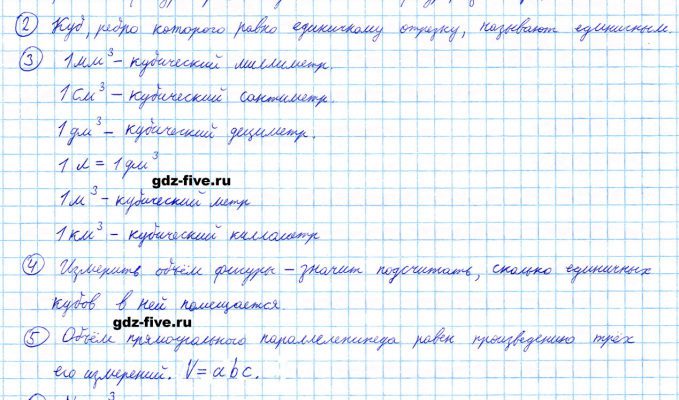 ② Куб, ребро которого равно единичному отрезку, называют единичным.
③ 1 мм³ – кубический миллиметр.
1 см³ – кубический сантиметр.
1 дм³ – кубический дециметр.
1 л = 1 дм³
gdz-five.ru
1 м³ – кубический метр
1 км³ – кубический киллометр
④ Измерить объём фигуры – значит подсчитать, сколько единичных
кубов в ней помещается.
gdz-five.ru
⑤ Объём прямоугольного параллелепипеда равен произведению трёх
его измерений. V = abc.